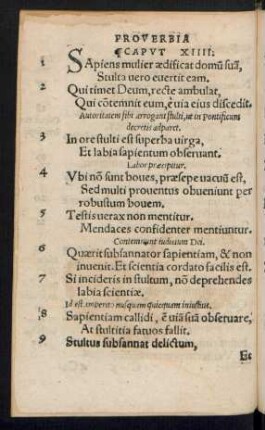 PROVERBIA
¶CAPVT XIIII:
1 SApiens mulier ædificat domũ suã,
Stulta uero euertit eam.
2 Qui timet Deum, recte ambulat,
Qui cõtemnit eum, è uia eius discedit.
Autoritatem sibi arrogant stulti, ut in Pontificum
decretis adparet.
3 In ore stulti est superba uirga,
Et labia sapientum obseruant.
Labor præcipitur.
4 Vbi nõ sunt boues, præsepe uacuũ est,
Sed multi prouentus obueniunt per
robustum bouem.
5 Testis uerax non mentitur.
Mendaces confidenter mentiuntur.
Contemnunt iudicium Dei.
6 Quærit subsannator sapientiam, & non
inuenit. Et scientia cordato facilis est.
7 Si incideris in stultum, nõ deprehendes
labia scientiæ.
Id est, imperito nusquam quicquam iniustius.
8 Sapientiam callidi, ẽ uiã suã obseruare,
At stultitia fatuos fallit.
9 Stultus subsannat delictum,
Et